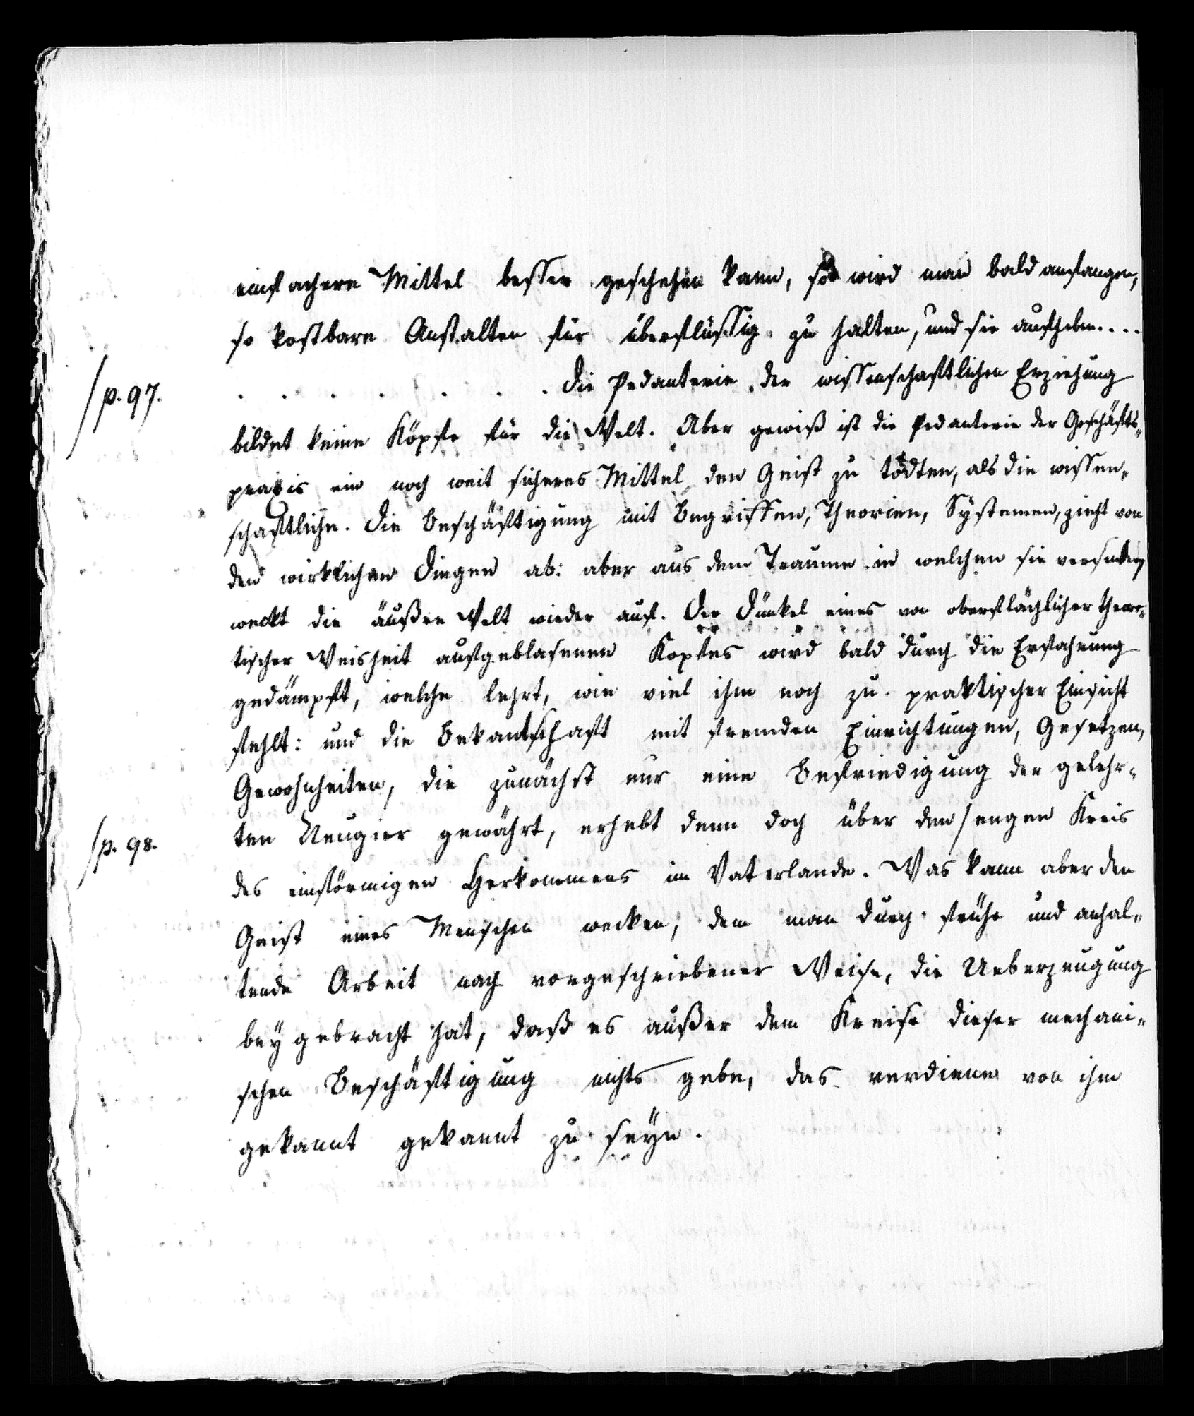 einfachere Mittel besser geschehen kann, so wird man bald anfangen,
so kostbare Anstalten für überflüssig zu halten, und sie aufheben....
/p. 97. . . . . . . . Die Pedanterie der wissenschaftlichen Erziehung
bildet keine Köpfe für die Welt. Aber gewiß ist die Pedanterie der Geschäfts-
praxis ein noch weit sicheres Mittel den Geist zu tödten, als die wissen-
schaftliche. Die Beschäftigung mit Begriffen, Theorien, Systemen, zieht von
den wirklichen Dingen ab: aber aus dem Traume in welchen sie versenken
weckt die äußre Welt wieder auf. Der Dünkel eines von oberflächlicher theore-
tischer Weisheit aufgeblasenen Kopfes wird bald durch die Erfahrung
gedämpft, welche lehrt, wie viel ihm noch zu praktischer Einsicht
fehlt: und die Bekantschaft mit fremden Einrichtungen, Gesetzen,
Gewohnheiten, die zunächst nur eine Befriedigung der gelehr-
ten Neugier gewährt, erhebt denn doch über den/engen Kreis
/p. 98.
des einförmigen Herkommens im Vaterlande. Was kann aber den
Geist eines Menschen wecken, dem man durch frühe und anhal-
tende Arbeit nach vorgeschriebener Weise, die Ueberzeugung
beygebracht hat, daß es außer dem Kreise dieser mechani-
schen Beschäftigung nichts gebe, das verdiene von ihm
gekannt gekannt zu seyn.